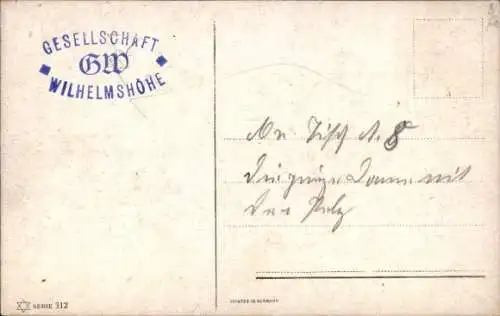 GESELLSCHAFT
GW
WILHELMSHÖHE
An Tisch N. 8
die junge Dame mit
den Pelz
SERIE 312
PRINTED IN GERMANY